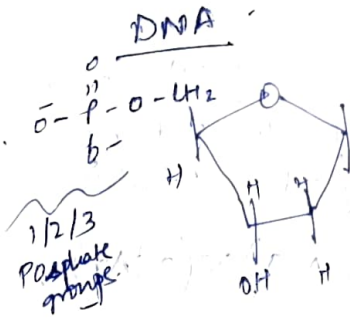 DNA
O
O⁻ - P - O - CH₂
O
O⁻
H
H H
OH H
1/2/3
Posphate
groups.